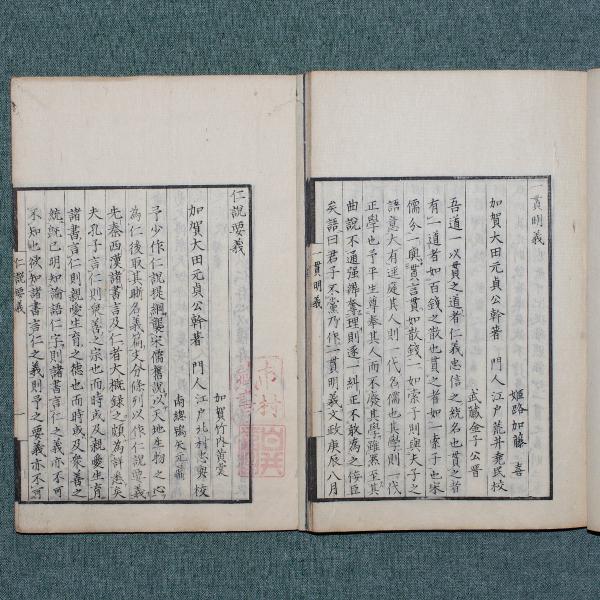 一貫明義
姬路加藤　喜
加賀大田元貞公幹著　門人江戶荒井堯民校
武藏金子公晋
吾道一以貫之道者仁義忠信之統名也貫之者
有一道者如百錢之散也也者如一索子也宋
儒分一與貫言貫如散錢一如索子則與夫子之
語意大有逕庭其人則一代名儒也其學則一代
正學也予平生尊奉其人而不廢其學雖然至其
曲說不通强辯奪理則逐一糾正不敢為之佞臣
矣語曰君子不黨乃作一貫明義文政庚辰八月
一貫明義
一
仁說要義
加賀竹內黃裳
加賀大田元貞公幹著　門人江戶北村忠與校
南總鴇矢元
予少作仁說提綱襲宋儒舊說以天地生物之心
為仁後取其聯名義篇文分條列以作仁說要義
先秦西漢諸書言及仁者大概錄之頗為詳悉矣
夫孔子言仁則衆善之宗也而時或及親愛生育
諸書言仁則親愛生育之德也而時或及衆善之
統既已明知論語仁字則諸書言仁之義亦不可
不知也欲知諸書言仁之義則予之要義亦不可
仁說要義
一
市村